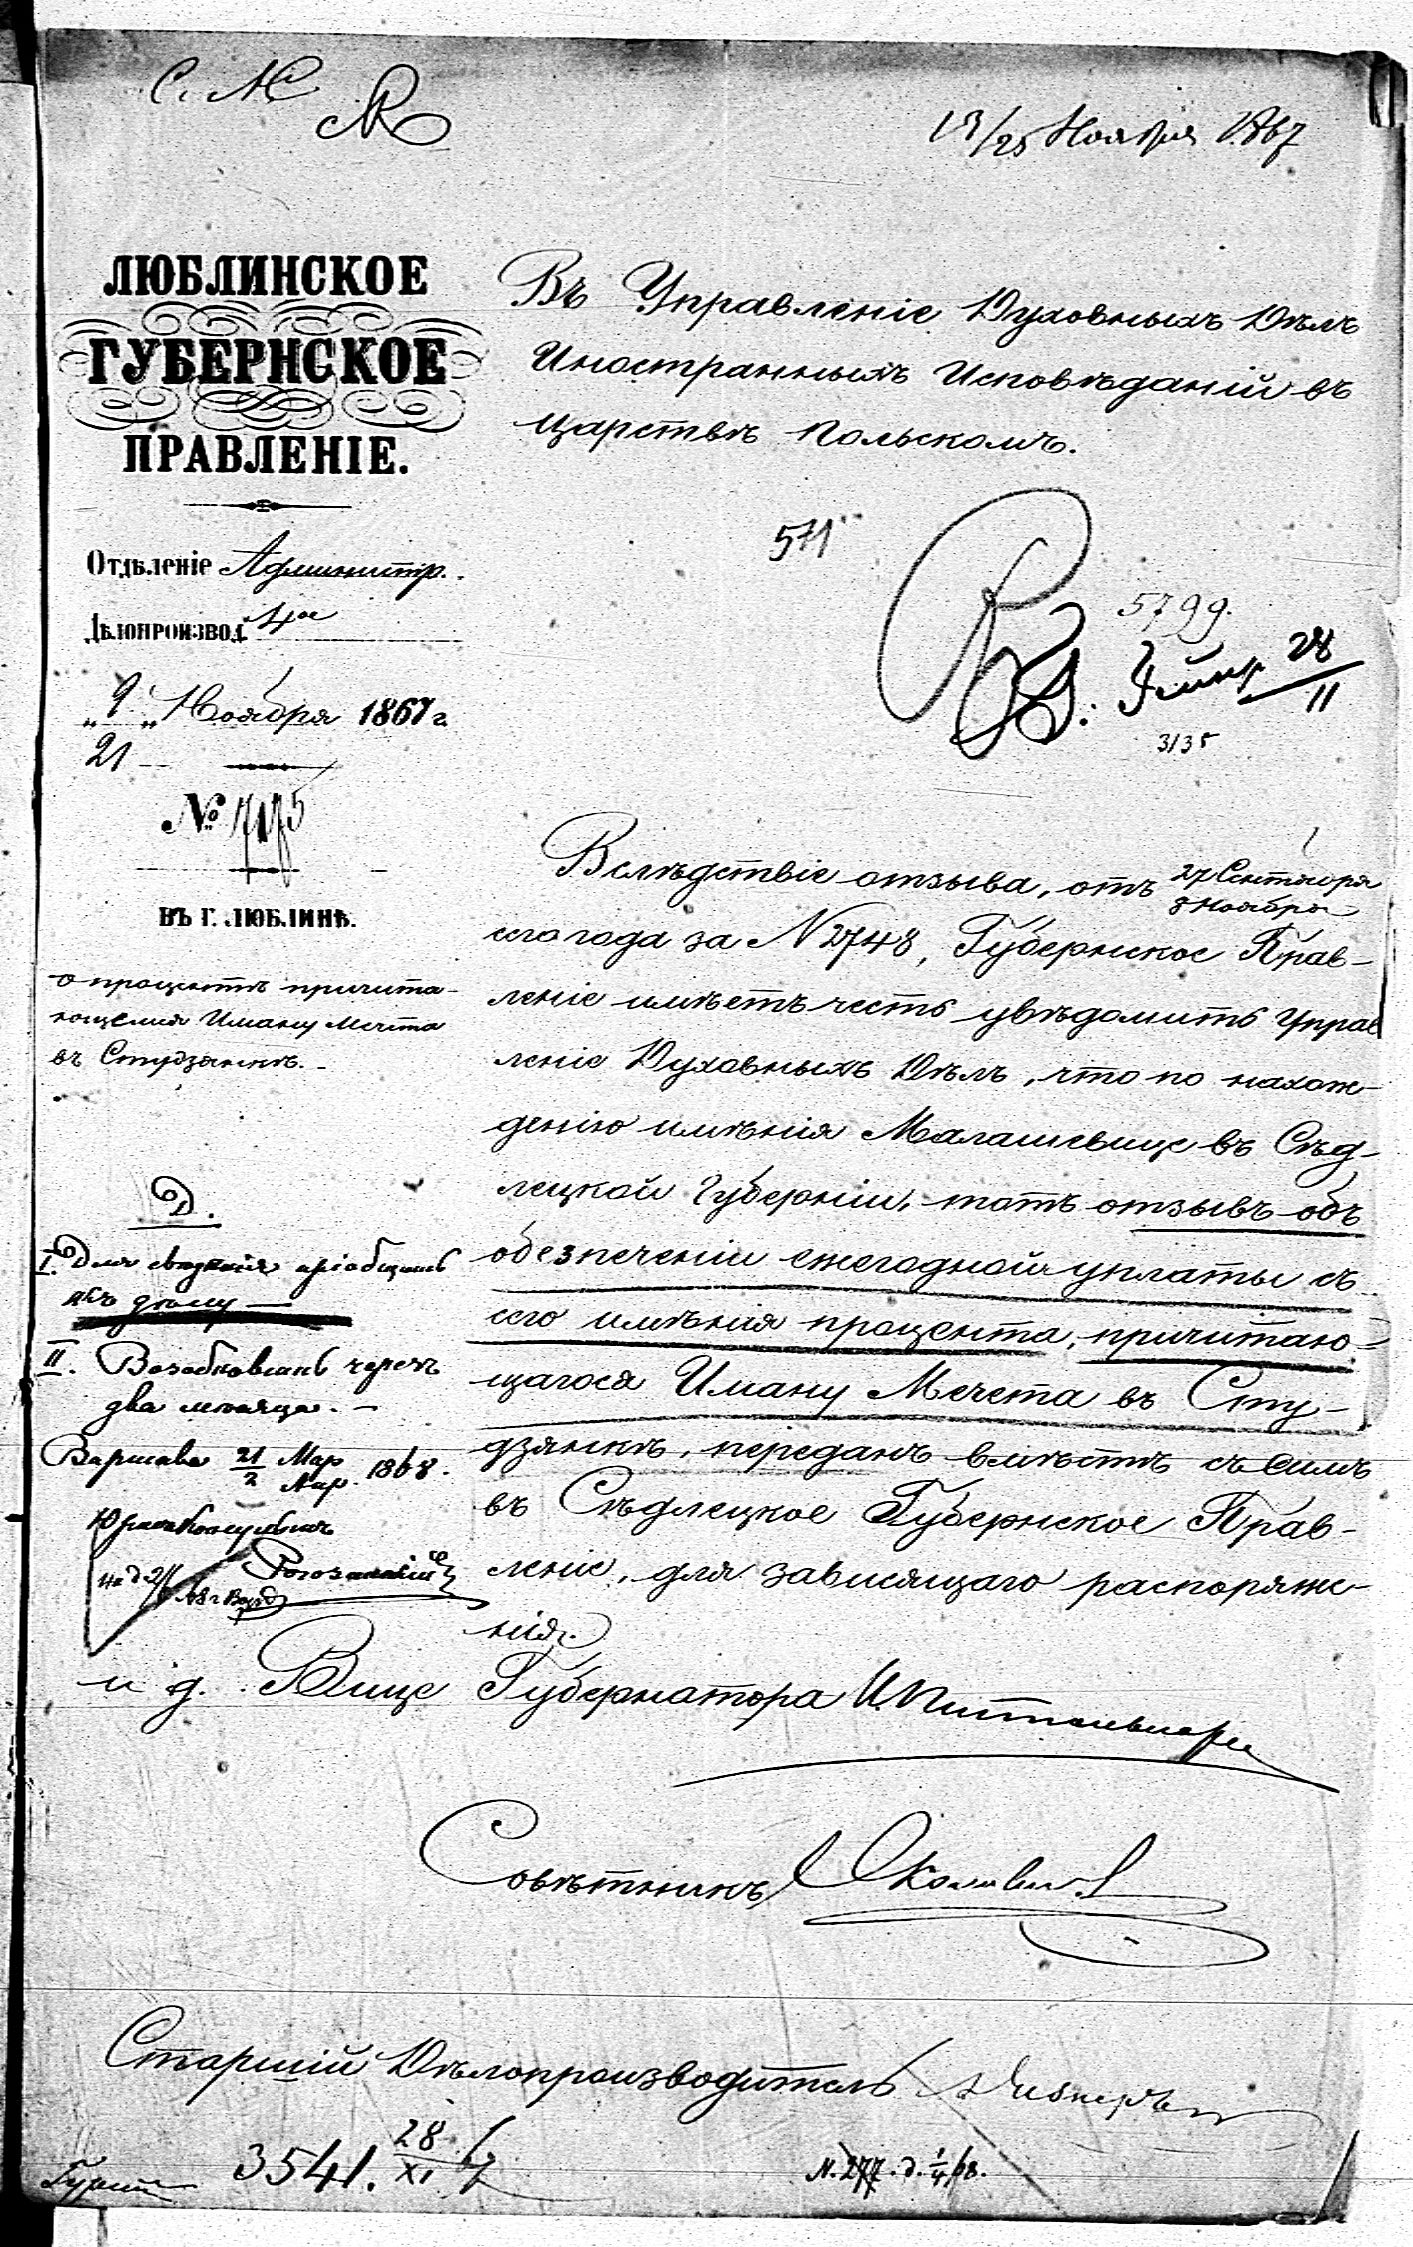 С. М.
13/25 Ноября 1867
ЛЮБЛИНСКОЕ
ГУБЕРНСКОЕ
ПРАВЛЕНІЕ.
Отдѣленіе Администр.
Дѣлопроизвод. 4ое
„ 9 „ Ноября 1867 г.
21
№
ВЪ Г. ЛЮБЛИНѢ.
о процентѣ причита-
ющемся Иману Мечета
въ Студзянкѣ.
Въ Управленіе Духовныхъ Дѣлъ
Иностранныхъ Исповѣданій въ
Царствѣ Польскомъ.
571
5799.
28/11
3135
Вслѣдствіе отзыва, отъ 27 Сентября
8 Ноября
сего года за N 2748, Губернское Прав-
леніе имѣетъ честь увѣдомить Управ
леніе Духовныхъ Дѣлъ, что по нахож-
денію имѣнія Малашевице въ Сѣд-
лецкой Губерніи, тотъ отзывъ объ
обезпеченіи ежегодной уплаты съ
сего имѣнія процента, причитаю-
щагося Иману Мечета въ Сту-
дзянкѣ, переданъ вмѣстѣ съ симъ
въ Сѣдлецкое Губернское Прав-
леніе, для зависящаго распоряже-
нія.
и д. Вице Губернатора
Совѣтникъ
Старшій Дѣлопроизводитель
D.
I. Для свѣденія пріобщить
къ дѣлу
II. Возобновить черезъ
два мѣсяца. -
Варшава 21/2 Мар/Апр 1868.
Юрисконсультъ
3541. 28/XI 67
N. 277. д. 1/4 68.